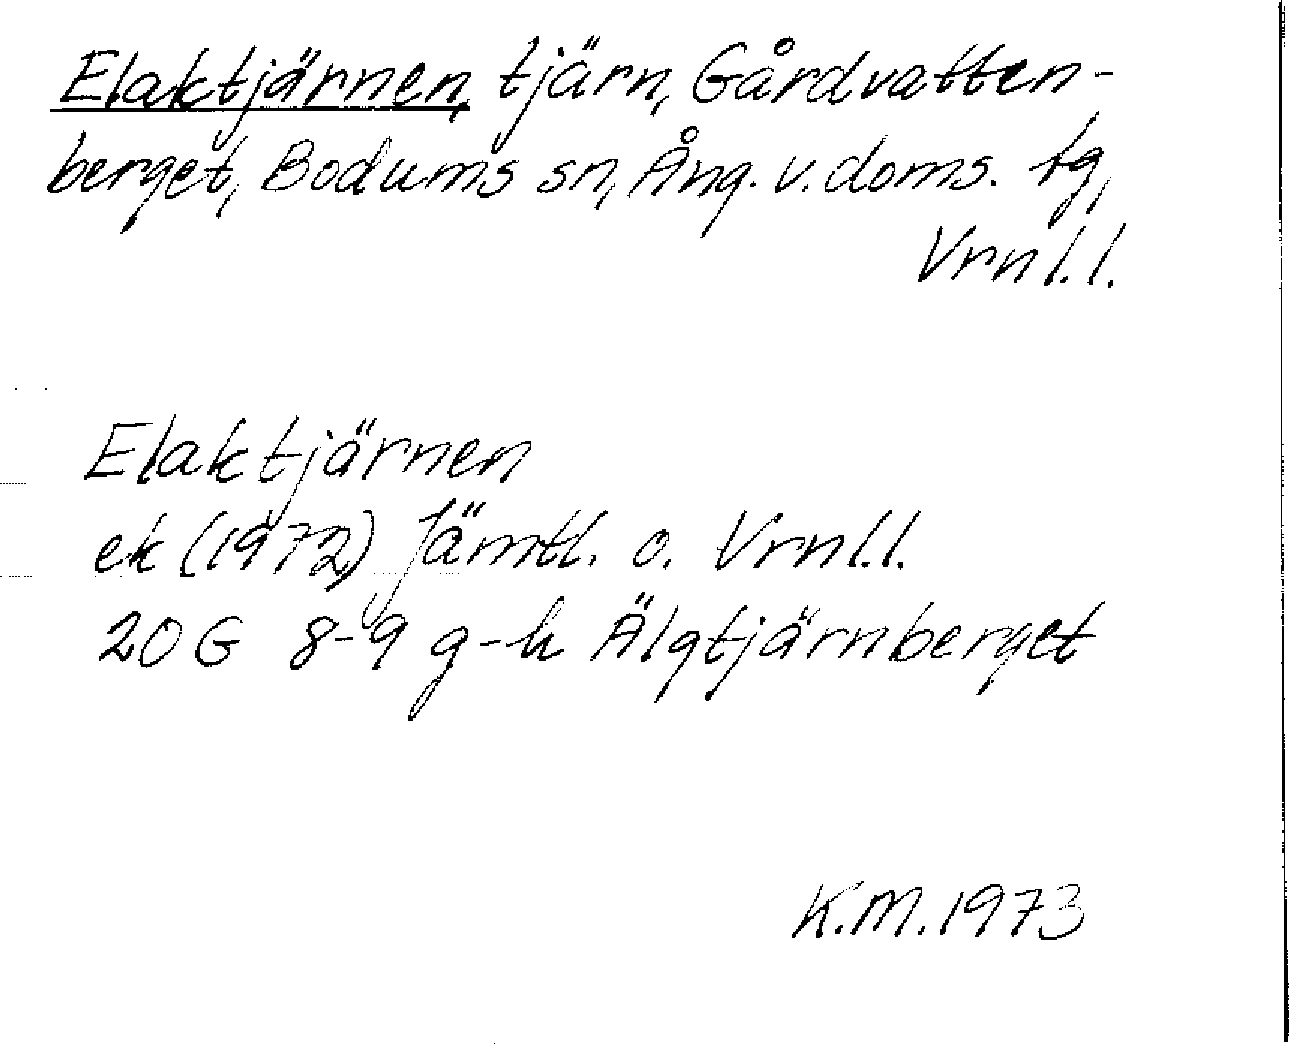 Elaktjärnen, tjärn, Gårdvatten-
berget, Bodums sn, Ång. v. doms. tg,
Vrnl.l.
Elaktjärnen
ek (1972) Jämtl. o. Vrnl.l.
20 G 8-9 g-h Älgtjärnberget
K.M. 1973